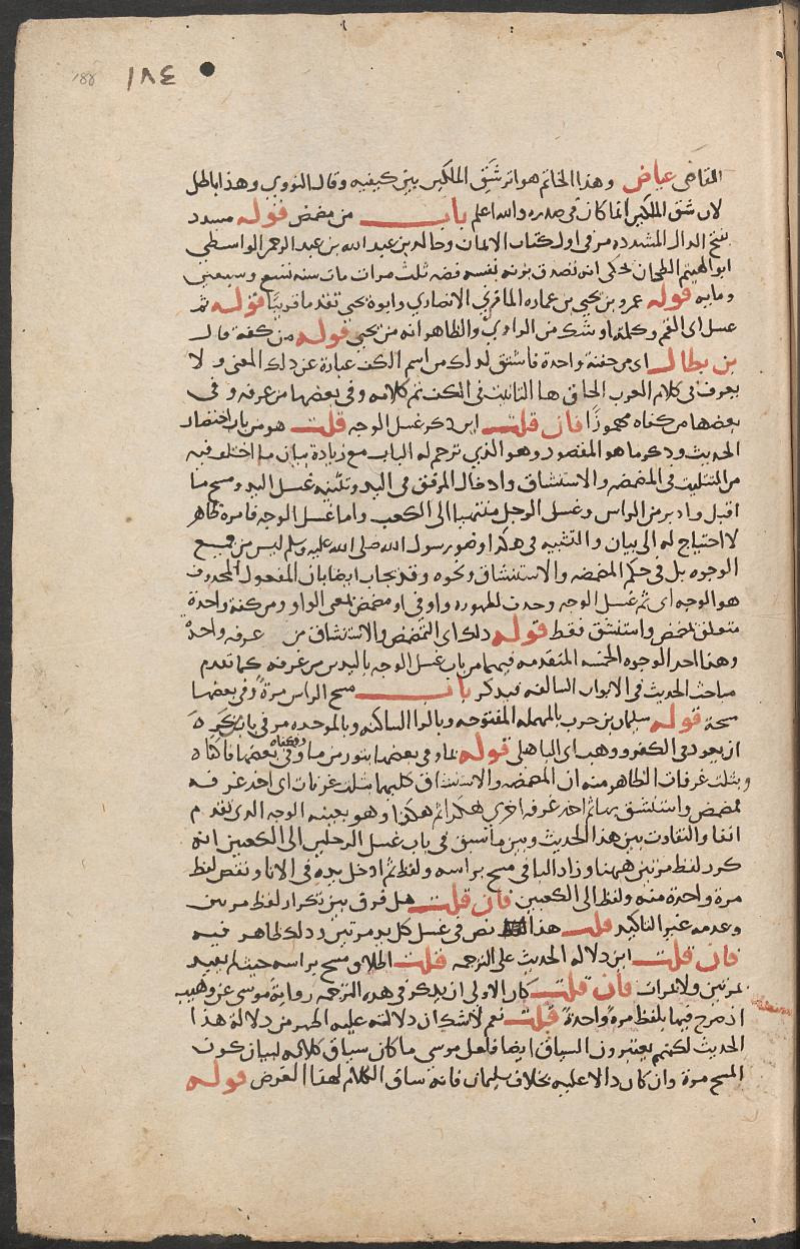 188 ١٨٤
القاضى عياض وهذا الخاتم هو اثر شق الملكين بين كتفيه وقال النووي وهذا باطل
لان شق الملكين انما كان في صدره والله اعلم باب من مضمض قوله مسدد
بفتح الدال المشدده مر في اول كتاب الايمان وخالد بن عبد الله بن عبد الرحمن الواسطى
ابو الهيثم الطحان يحكى انه تصدق بزنه نفسه فضه ثلث مرات مات سنه تسع وسبعين
ومايه قوله عمرو بن يحيى بن عماره المازني الانصاري وابوه يحيى تقدما قريبا قوله ثم
غسل اى الفم وكلمة او شك من الراوي والظاهر انه من يحيى قوله من كفة قال
بن بطال اى من حفنة واحدة فاشتق لذلك من اسم الكف عبارة عن ذلك المعنى و لا
يعرف في كلام العرب الحاق ها التانيث في الكف تم كلامه وفي بعضها من غرفه و في
بعضها من كفاه مهموزا فان قلت اين ذكر غسل الوجه قلت هو من باب اختصار
الحديث وذكر ما هو المقصود وهو الذي ترجم له الباب مع زيادة بيان ما اختلف فيه
من التثليث في المضمضه والاستنشاق وادخال المرفق في اليد وتثنيه غسل اليد ومسح ما
اقبل وادبر من الراس وغسل الرجل منتهيا الى الكعب واما غسل الوجه فامره ظاهر
لا احتياج له الى بيان والتشبيه في هكذا وضو رسول الله صلى الله عليه وسلم ليس من جميع
الوجوه بل في حكم المضمضه والاستنشاق ونحوه وقد يجاب ايضا بان المفعول المحذوف
هو الوجه اى ثم غسل الوجه وحذف لظهوره واو في او مضمض بمعنى الواو ومن كفة واحدة
متعلق بمضمض واستنشق فقط قوله ذلك اى التمضمض والاستنشاق من غرفه واحدة
وهذا احد الوجوه الخمسه المتقدمه فيهما من باب غسل الوجه باليدين من غرفه كما تقدم
مباحث الحديث في الابواب السالفه فيذكر باب مسح الراس مرة وفي بعضها
مسحة قوله سليمان بن حرب بالمهمله المفتوحه وبالرا الساكنه وبالموحده مر في باب من كره
ان يعود في الكفر ووهيب اى الباهلى قوله بماء وفي بعضها بتور من ما وفي بعضها فاكفاه
وبثلث غرفات الظاهر منه ان المضمضه والاستنشاق كليهما بثلث غرفات اى اخذ غرفه
فمضمض واستنشق بها ثم اخذ غرفه اخرى هكذا ثم هكذا وهو بعينه الوجه الذى تقدم
انفا والتفاوت بين هذا الحديث وبين ما سبق في باب غسل الرجلين الى الكعبين انه
كرر لفظ مرتين ههنا وزاد البا في مسح براسه ولفظ ثم ادخل يده في الانا ونقص لفظ
مرة واحدة منه ولفظ الى الكعبين فان قلت هل فرق بين تكرار لفظ مرتين
وعدمه غير التاكيد قلت هذا نص في غسل كل يد مرتين وذلك ظاهر فيه
فان قلت اين دلاله الحديث على الترجمه قلت اطلاق ومسح براسه حيث لم يقيد
بمرتين ولا بمرات فان قلت كان الاولى ان يذكر في هذه الترجمه رواية موسى عن وهيب
اذ صرح فيها بلفظ مرة واحدة قلت نعم لا شك ان دلالته عليه اظهر من دلالة هذا
الحديث لكنهم يعتبرون السياق ايضا فلعل موسى ما كان سياق كلامه لبيان كون
المسح مرة وان كان دالا عليه بخلاف سليمان فانه ساق الكلام لهذا الغرض قوله